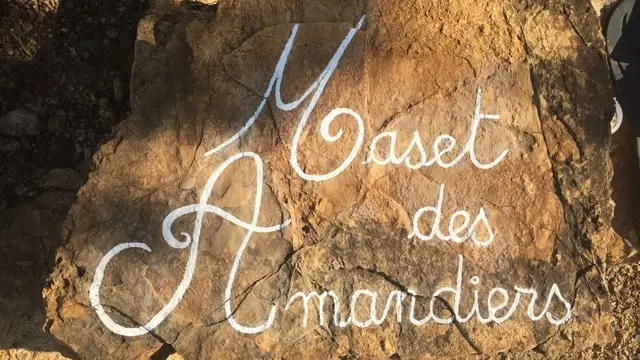 Maset
des
Amandiers